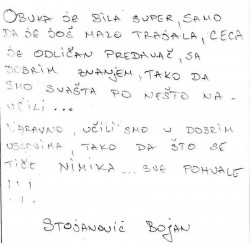 OBUKA JE BILA SUPER, SAMO
DA JE JOŠ MALO TRAJALA, CECA
JE ODLIČAN PREDAVAČ, SA
DOBRIM ZNANJEM, TAKO DA
SMO SVAŠTA PO NEŠTO NA-
UČILI...
NARAVNO, UČILI SMO U DOBRIM
USLOVIMA, TAKO DA ŠTO SE
TIČE NIMIKA... SVE POHVALE
!!!
STOJANOVIĆ BOJAN